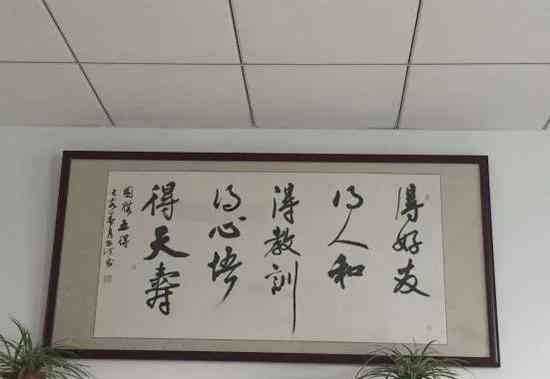 得好友
得人和
得教训
得心悟
得天寿